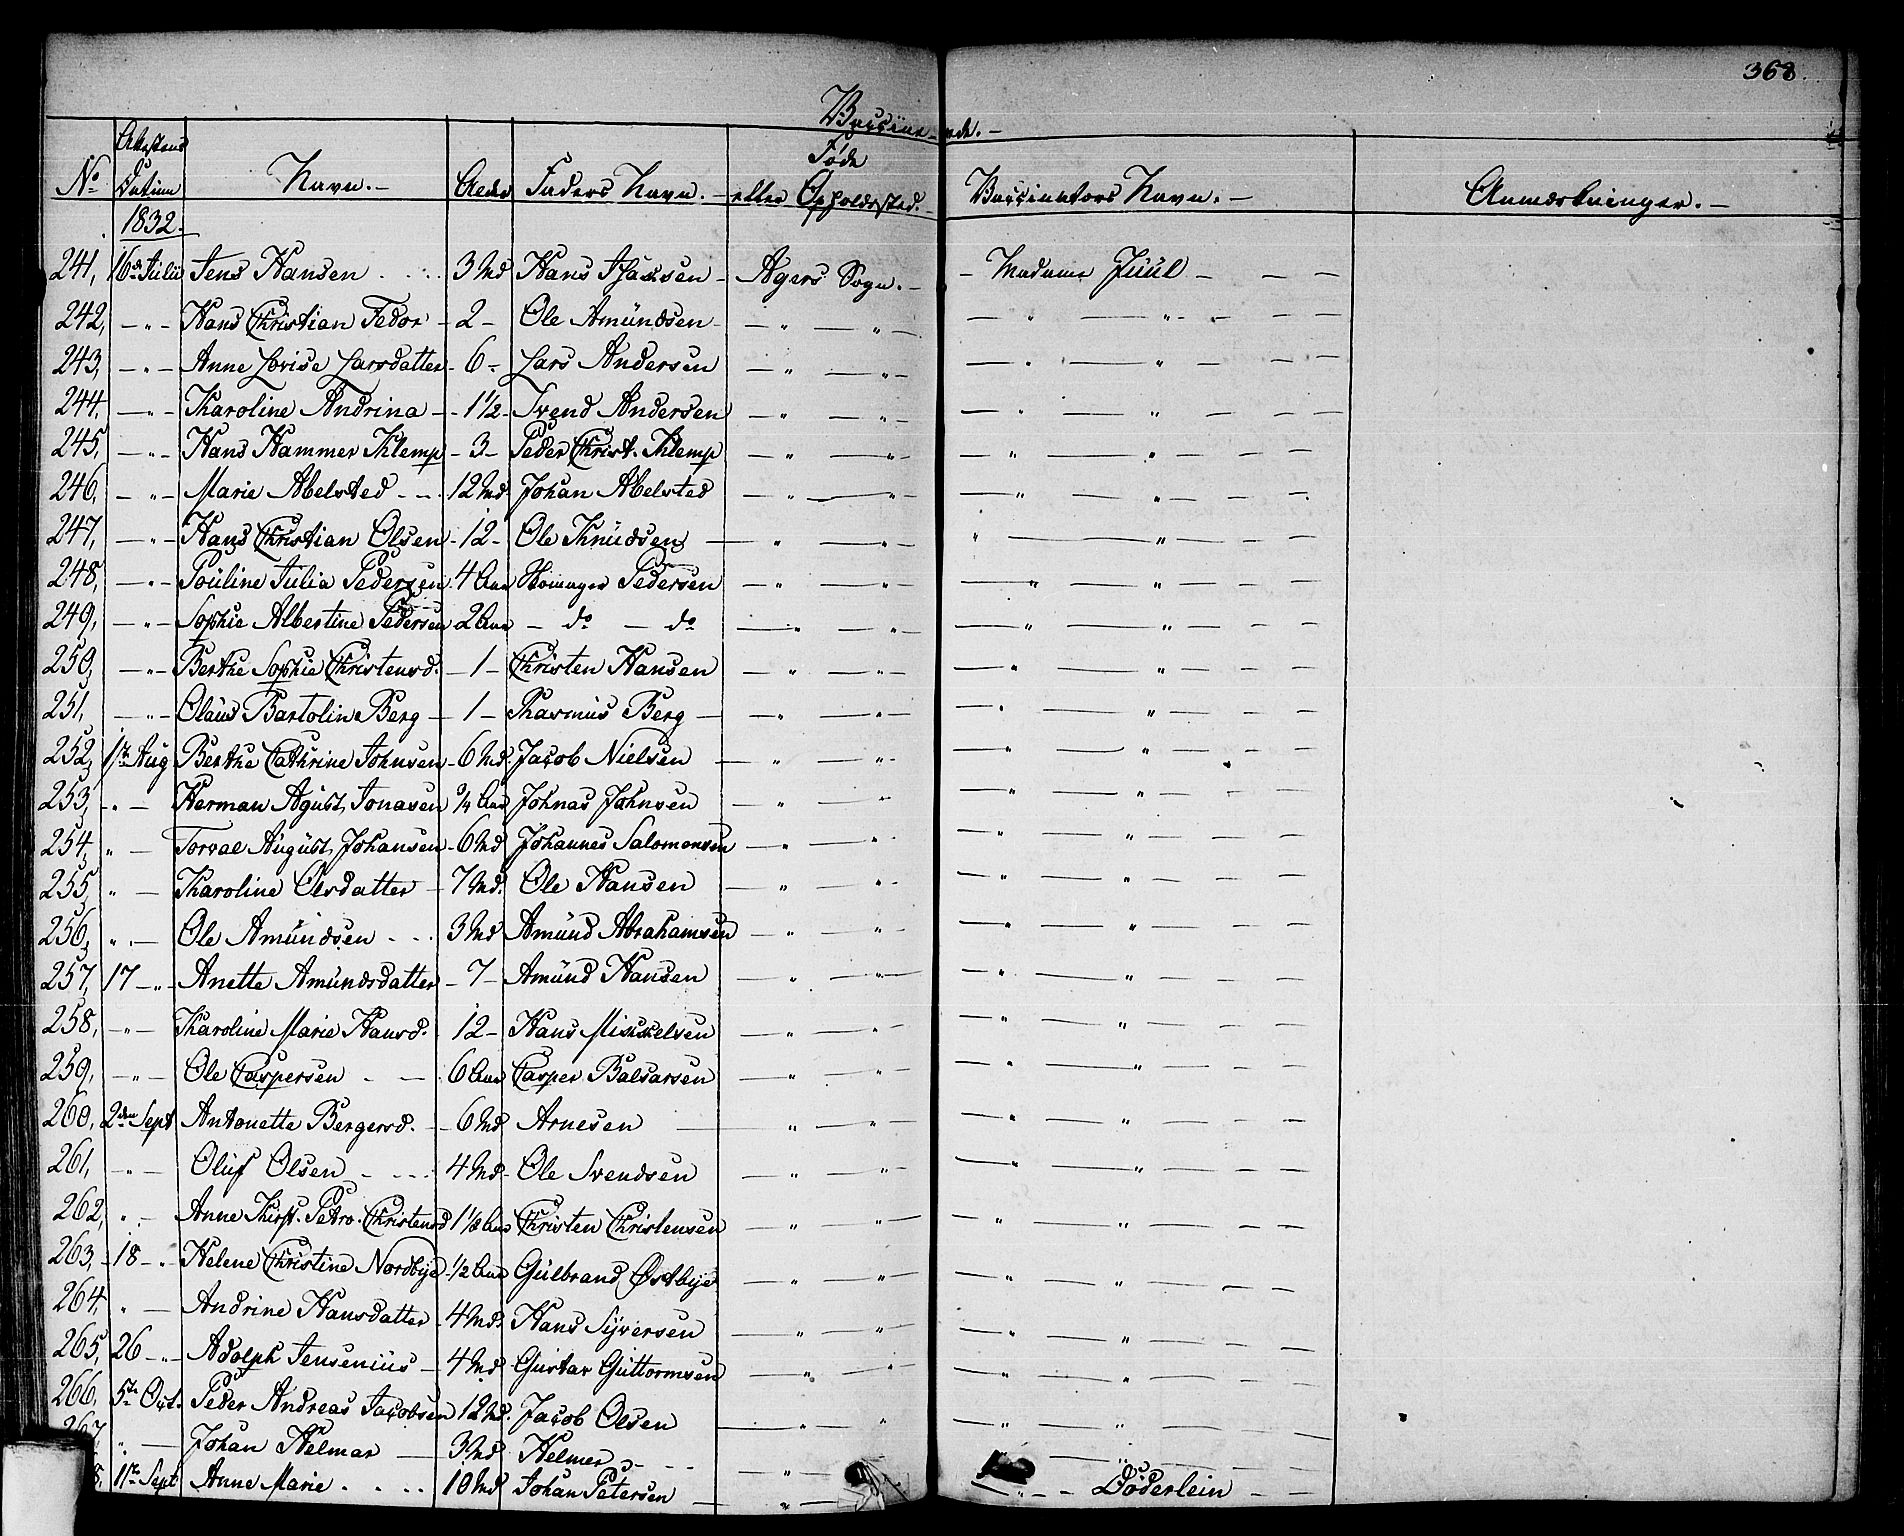 368.
Vaccine-rede.-
No Attestens Datum Navn.- Alder Faders Navn.- Føde eller Opholdssted.- Vaccinators Navn.- Anmærkninger.-
1832.
241, 16de Julii Jens Hansen 3 Md Hans Isacksen - Agers Sogn.- - Madame Juul - - -
242, -"- Hans Christian Fedor - 2 - Ole Amündsen - " - " - - " - " - - - -
243, -"- Anne Lovise Larsdatter - 6 - Lars Andersen - " - " - - " - " - - - -
244, -"- Karoline Andrina - - 1½ - Svend Andersen - " - " - - " - " - - - -
245, -"- Hans Hammer Klemp - 3 - Peder Christ. Klemp - " - " - - " - " - - - -
246, -"- Marie Abelsted - - 12 Md Johan Abelsted - " - " - - " - " - - - -
247, -"- Hans Christian Olsen - 12 - Ole Knüdsen - " - " - " - " - - - -
248, -"- Pouline Julia Pedersen 4 Aar Pedersen - " - " - - " - " - - - -
249, -"- Sophie Albertine Pedersen 2 Aar - do - do - " - " - - " - " - - - -
250, -"- Berthe Sophie Christensd. - 1 - Christen Hansen - " - " - - " - " - - - -
251, -"- Olaus Bartolin Berg - 1 - Rasmüs Berg - - " - " - - " - " - - - -
252, 1ste Aug Berthe Cathrine Johnsen - 6 Md. Jacob Nielsen - " - " - - " - " - - - -
253, " - Herman Agust Jonasen ¾ Aar Johnas Johnsen - " - " - - " - " - - - -
254, " - Torval August Johansen - 6 Md Johannes Salomonsen - " - " - - " - " - - - -
255, " - Karoline Olsdatter - 7 Md. Ole Hansen - " - " - - " - " - - - -
256, " - Ole Amündsen - - 3 Md Amünd Abrahamsen - " - " - - " - " - - - -
257, 17 -"- Anette Amündsdatter - 7 - Amünd Hansen - " - " - - " - " - - - -
258, -"- Karoline Marie Hansd. 12 - Hans Mikkelsen - " - " - - " - " - - - -
259, -"- Ole Caspersen - - 6 Aar Casper Balsarsen - " - " - - " - " - - - -
260, 2den Sept Antonette Bergersd. - 6 Md Arnesen - " - " - - " - " - - - -
261, -"- Oluf Olsen - - 4 Md - Ole Svendsen - " - " - - " - " - - - -
262, " - Anne Petro. Christensd 1⅛ Aar Christen Christensen - " - " - - " - " - - - -
263, 18 -"- Helene Christine Nordbye ½ Aar Gülbrand Østbye - " - " - - " - " - - - -
264, " - Andrine Hansdatter 4 Md. Hans Syversen - " - " - - " - " - - - -
265, 26 -"- Adolph Jensenius - 4 Md Gustav Güttormsen - " - " - - " - " - - - -
266, 5te Oct. Peder Andreas Jacobsen 12 Md. Jacob Olsen - " - " - - " - " - - - -
267, " - Johan Helmar - 3 Md Helmer - - - " - - " - - - -
8, 11te Sept Anne Marie - - 10 Md Johan Petersen - " - - " - - Döderlein - -